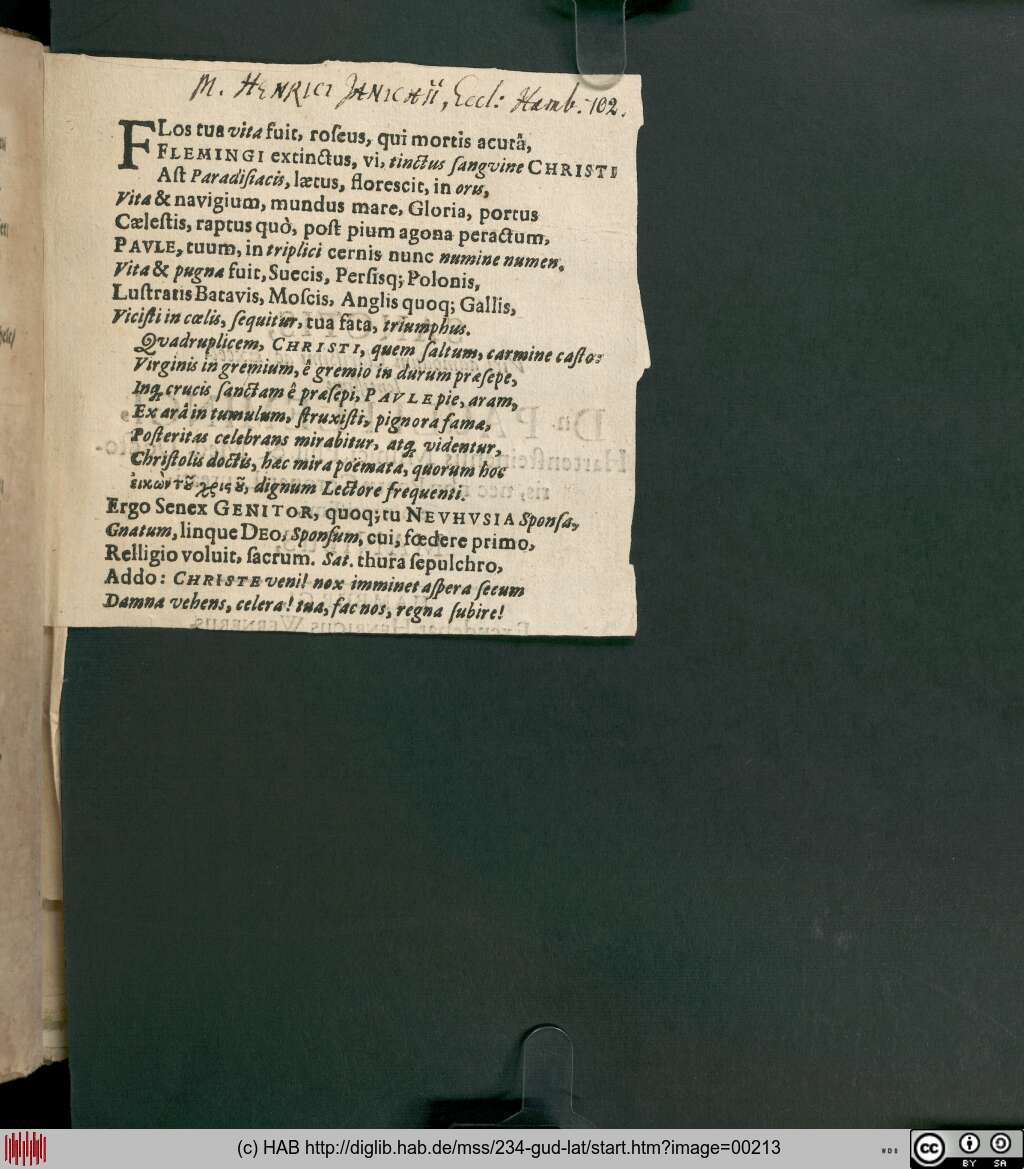 M. HENRICI JANICHII, Eccl: Hamb: 102.
FLos tua vita fuit, roſeus, qui mortis acutâ,
FLEMINGI extinctus, vi, tinctus ſangvine CHRISTI
Aſt Paradiſiacis, lætus, floreſcit, in oris,
Vita & navigium, mundus mare, Gloria, portus
Cæleſtis, raptus quò, poſt pium agona peractum,
PAVLE, tuum, in triplici cernis nunc numine numen.
Vita & pugna fuit, Suecis, Perſisq; Polonis,
Luſtratis Batavis, Moſcis, Anglis quoq; Gallis,
Viciſti in cœlis, ſequitur, tua fata, triumphus.
Qvadruplicem, CHRISTI, quem ſaltum, carmine caſto:
Virginis in gremium, ê gremio in durum præſepe,
Inq, crucis ſanctam ê præſepi, PAVLE pie, aram,
Ex arâ in tumulum, ſtruxiſti, pignora fama,
Poſteritas celebrans mirabitur, atq, videntur,
Chriſtolis doctis, hæc mira poëmata, quorum hoc
dignum Lectore frequenti.
Ergo Senex GENITOR, quoq; tu NEVHVSIA Sponſa,
Gnatum, linque DEO, Sponſum, cui, fœdere primo,
Relligio voluit, ſacrum. Sat. thura ſepulchro,
Addo: CHRISTE veni! nox imminet aſpera ſecum
Damna vehens, celera! tua, fac nos, regna ſubire!
(c) HAB http://diglib.hab.de/mss/234-gud-lat/start.htm?image=00213
cc BY SA